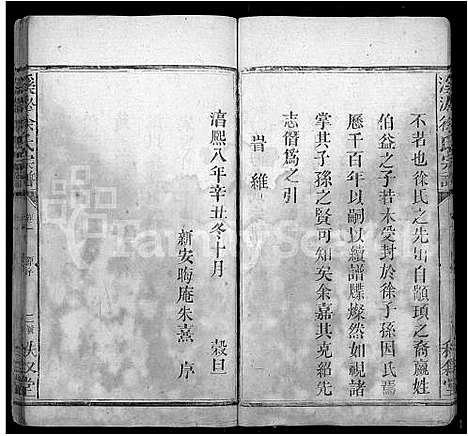 不名也徐氏之先出自顓頊之裔嬴姓
伯益之子若木受封於徐子孫因氏焉
歷千百年以嗣以續譜牒燦然如視諸
掌其子孫之賢可知矣余嘉其克紹先
志僭爲之引
旹維
淳熙八年辛丑冬十月 穀旦
新安晦庵朱熹 序
徐氏宗譜
FamilySearch